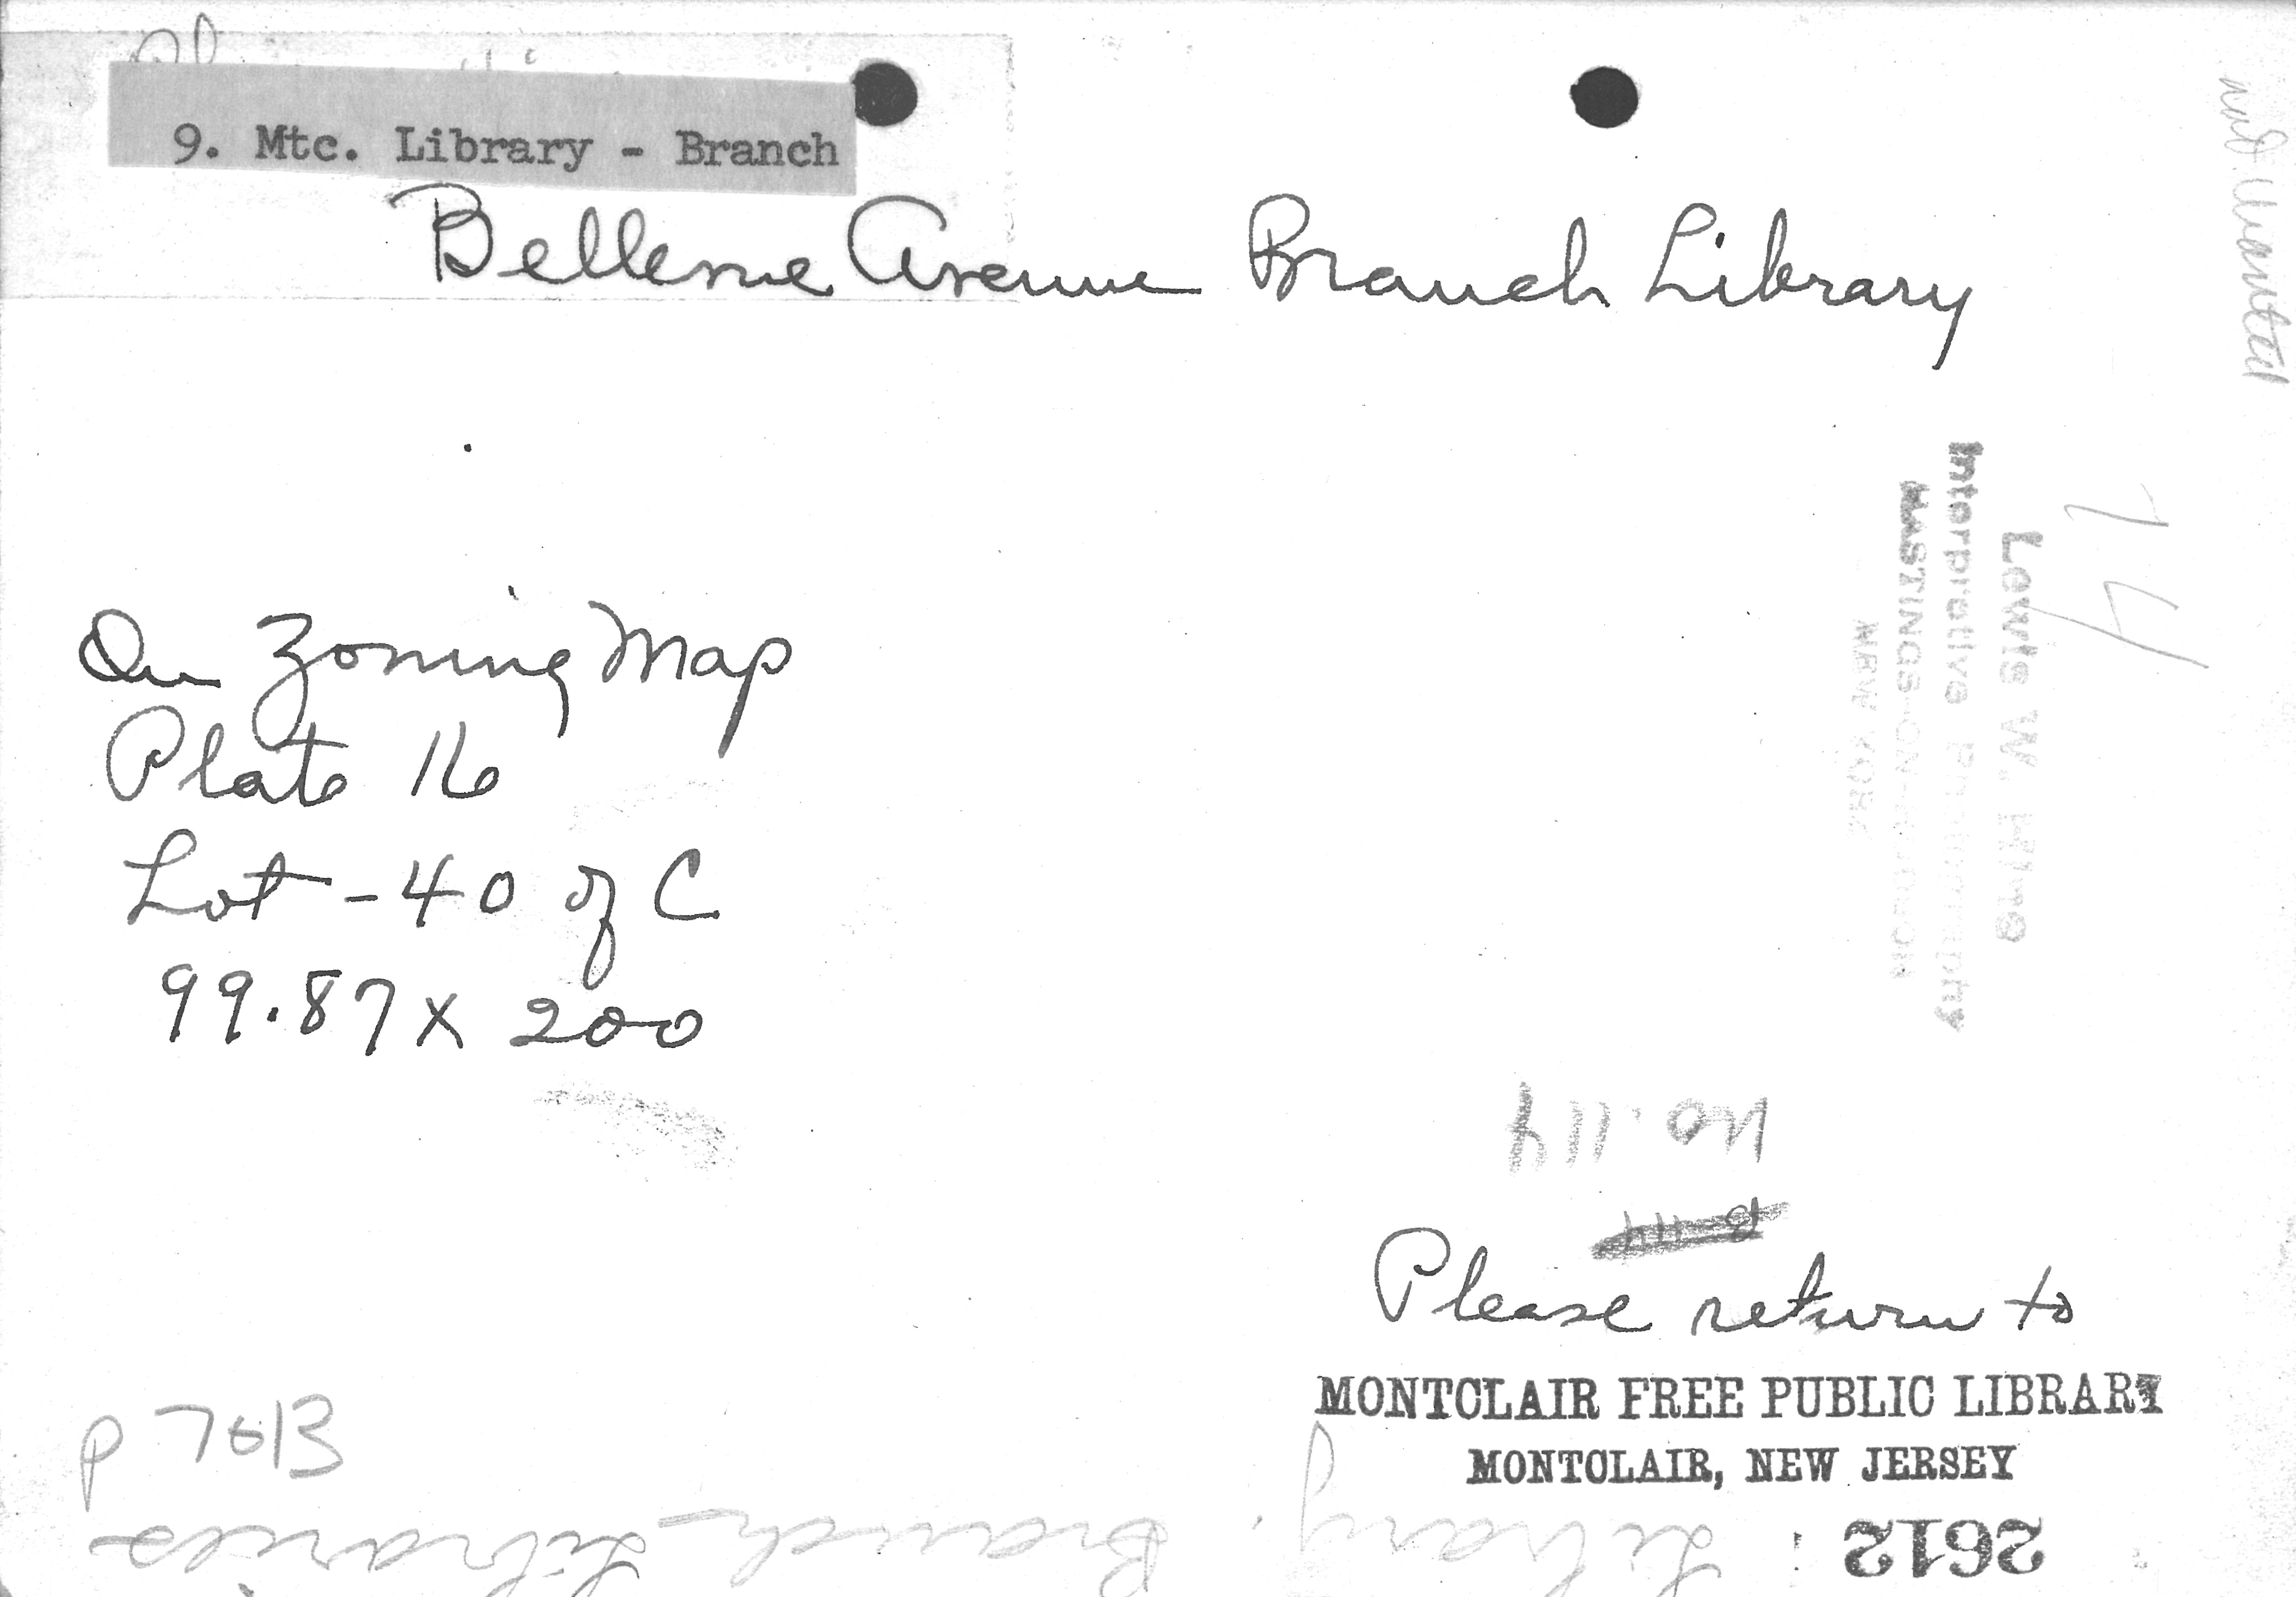 9. Mtc. Library - Branch
Bellevue Avenue Branch Library
On Zoning Map
Plate 16
Lot - 40 of C
99.87 x 200
Lewis W. Hine
Interpretive Photography
HASTINGS-ON-HUDSON
NEW YORK
74
No. 114
Please return to
MONTCLAIR FREE PUBLIC LIBRARY
MONTCLAIR, NEW JERSEY
2612
Library. Branch - Libraries